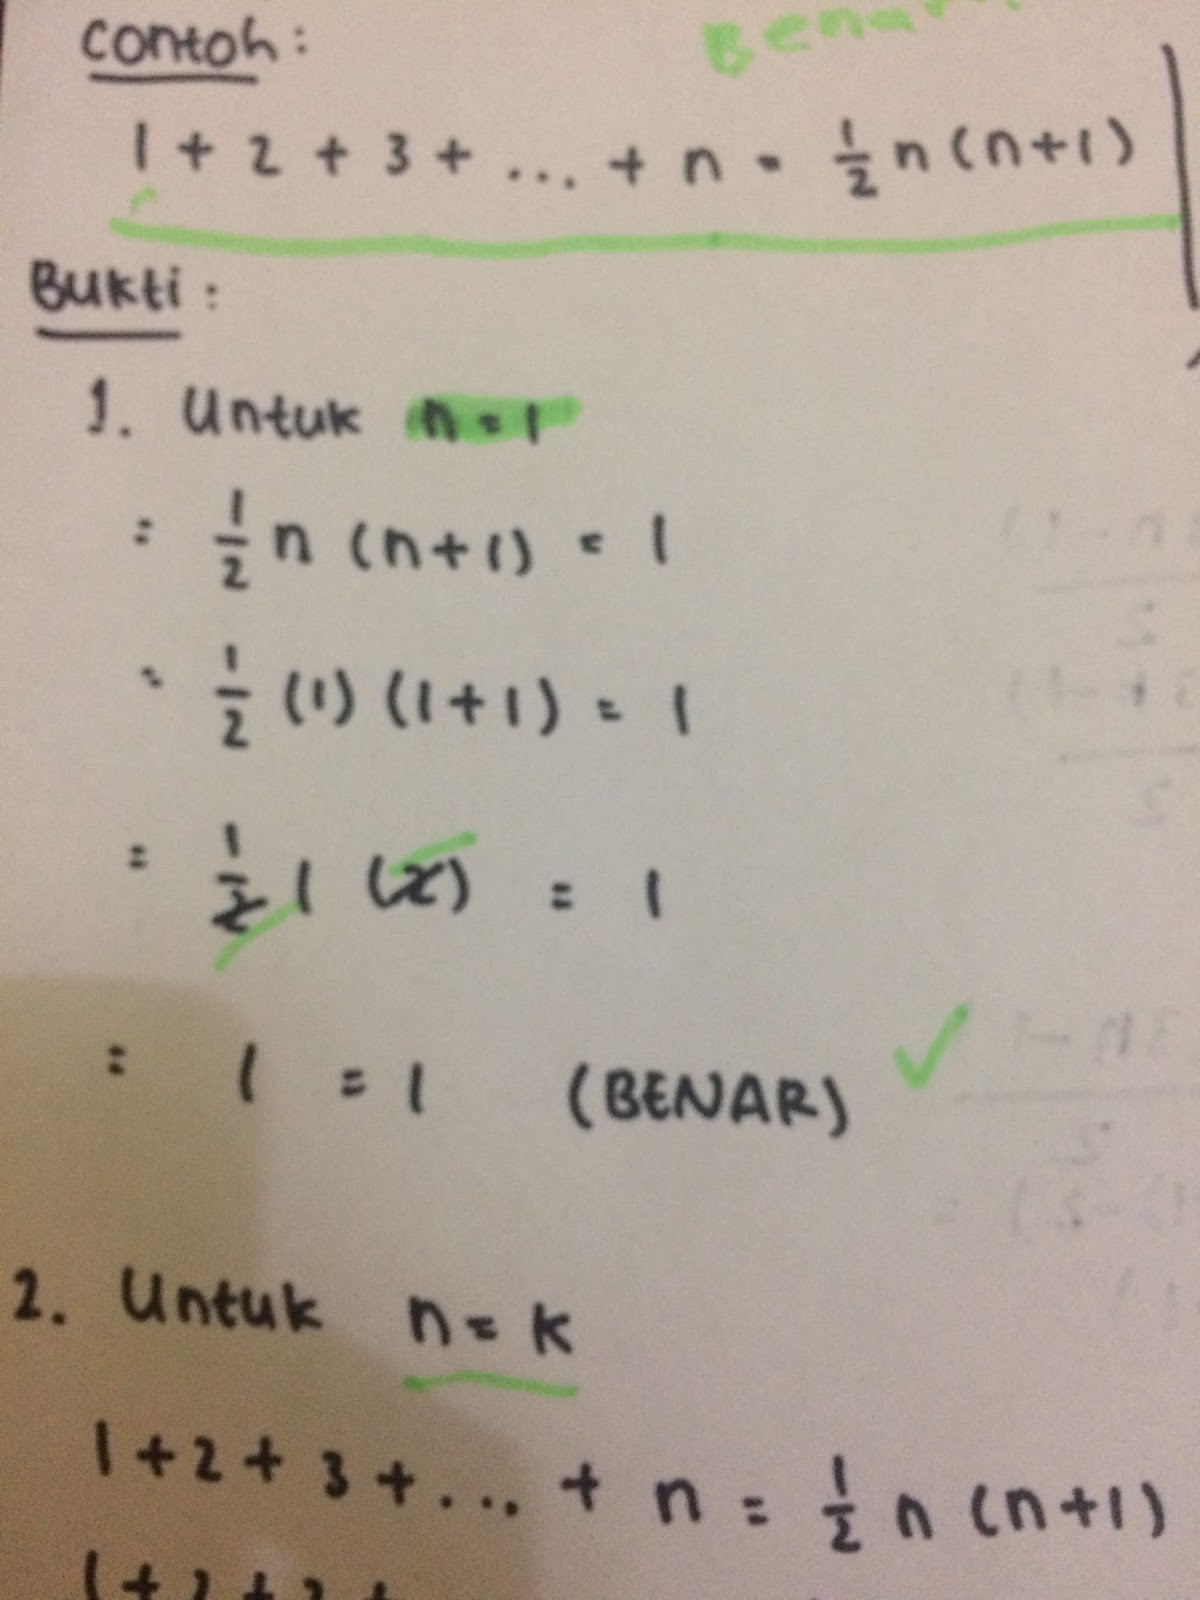 Benar
Contoh:
1 + 2 + 3 + ... + n = ½ n (n+1)
Bukti:
1. Untuk n = 1
= ½ n (n+1) = 1
= ½ (1) (1+1) = 1
= ½ 1 (2) = 1
= 1 = 1 (BENAR) ✓
2. Untuk n = k
1 + 2 + 3 + ... + n = ½ n (n+1)